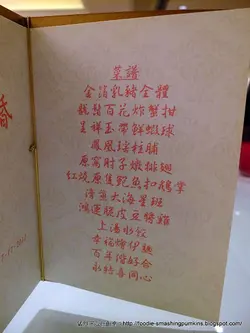 菜譜
金箔乳豬全體
龍鬚百花炸蟹拑
呈祥玉帶鮮蝦球
鳳凰瑤柱脯
原窩肘子燉排翅
紅燒原隻鮑魚扣鵝掌
清蒸大海星斑
鴻運脆皮豆醬雞
上湯水餃
幸福炆伊麵
百年諧好合
永結喜同心
http://foodie-smashingpumkins.blogspot.com